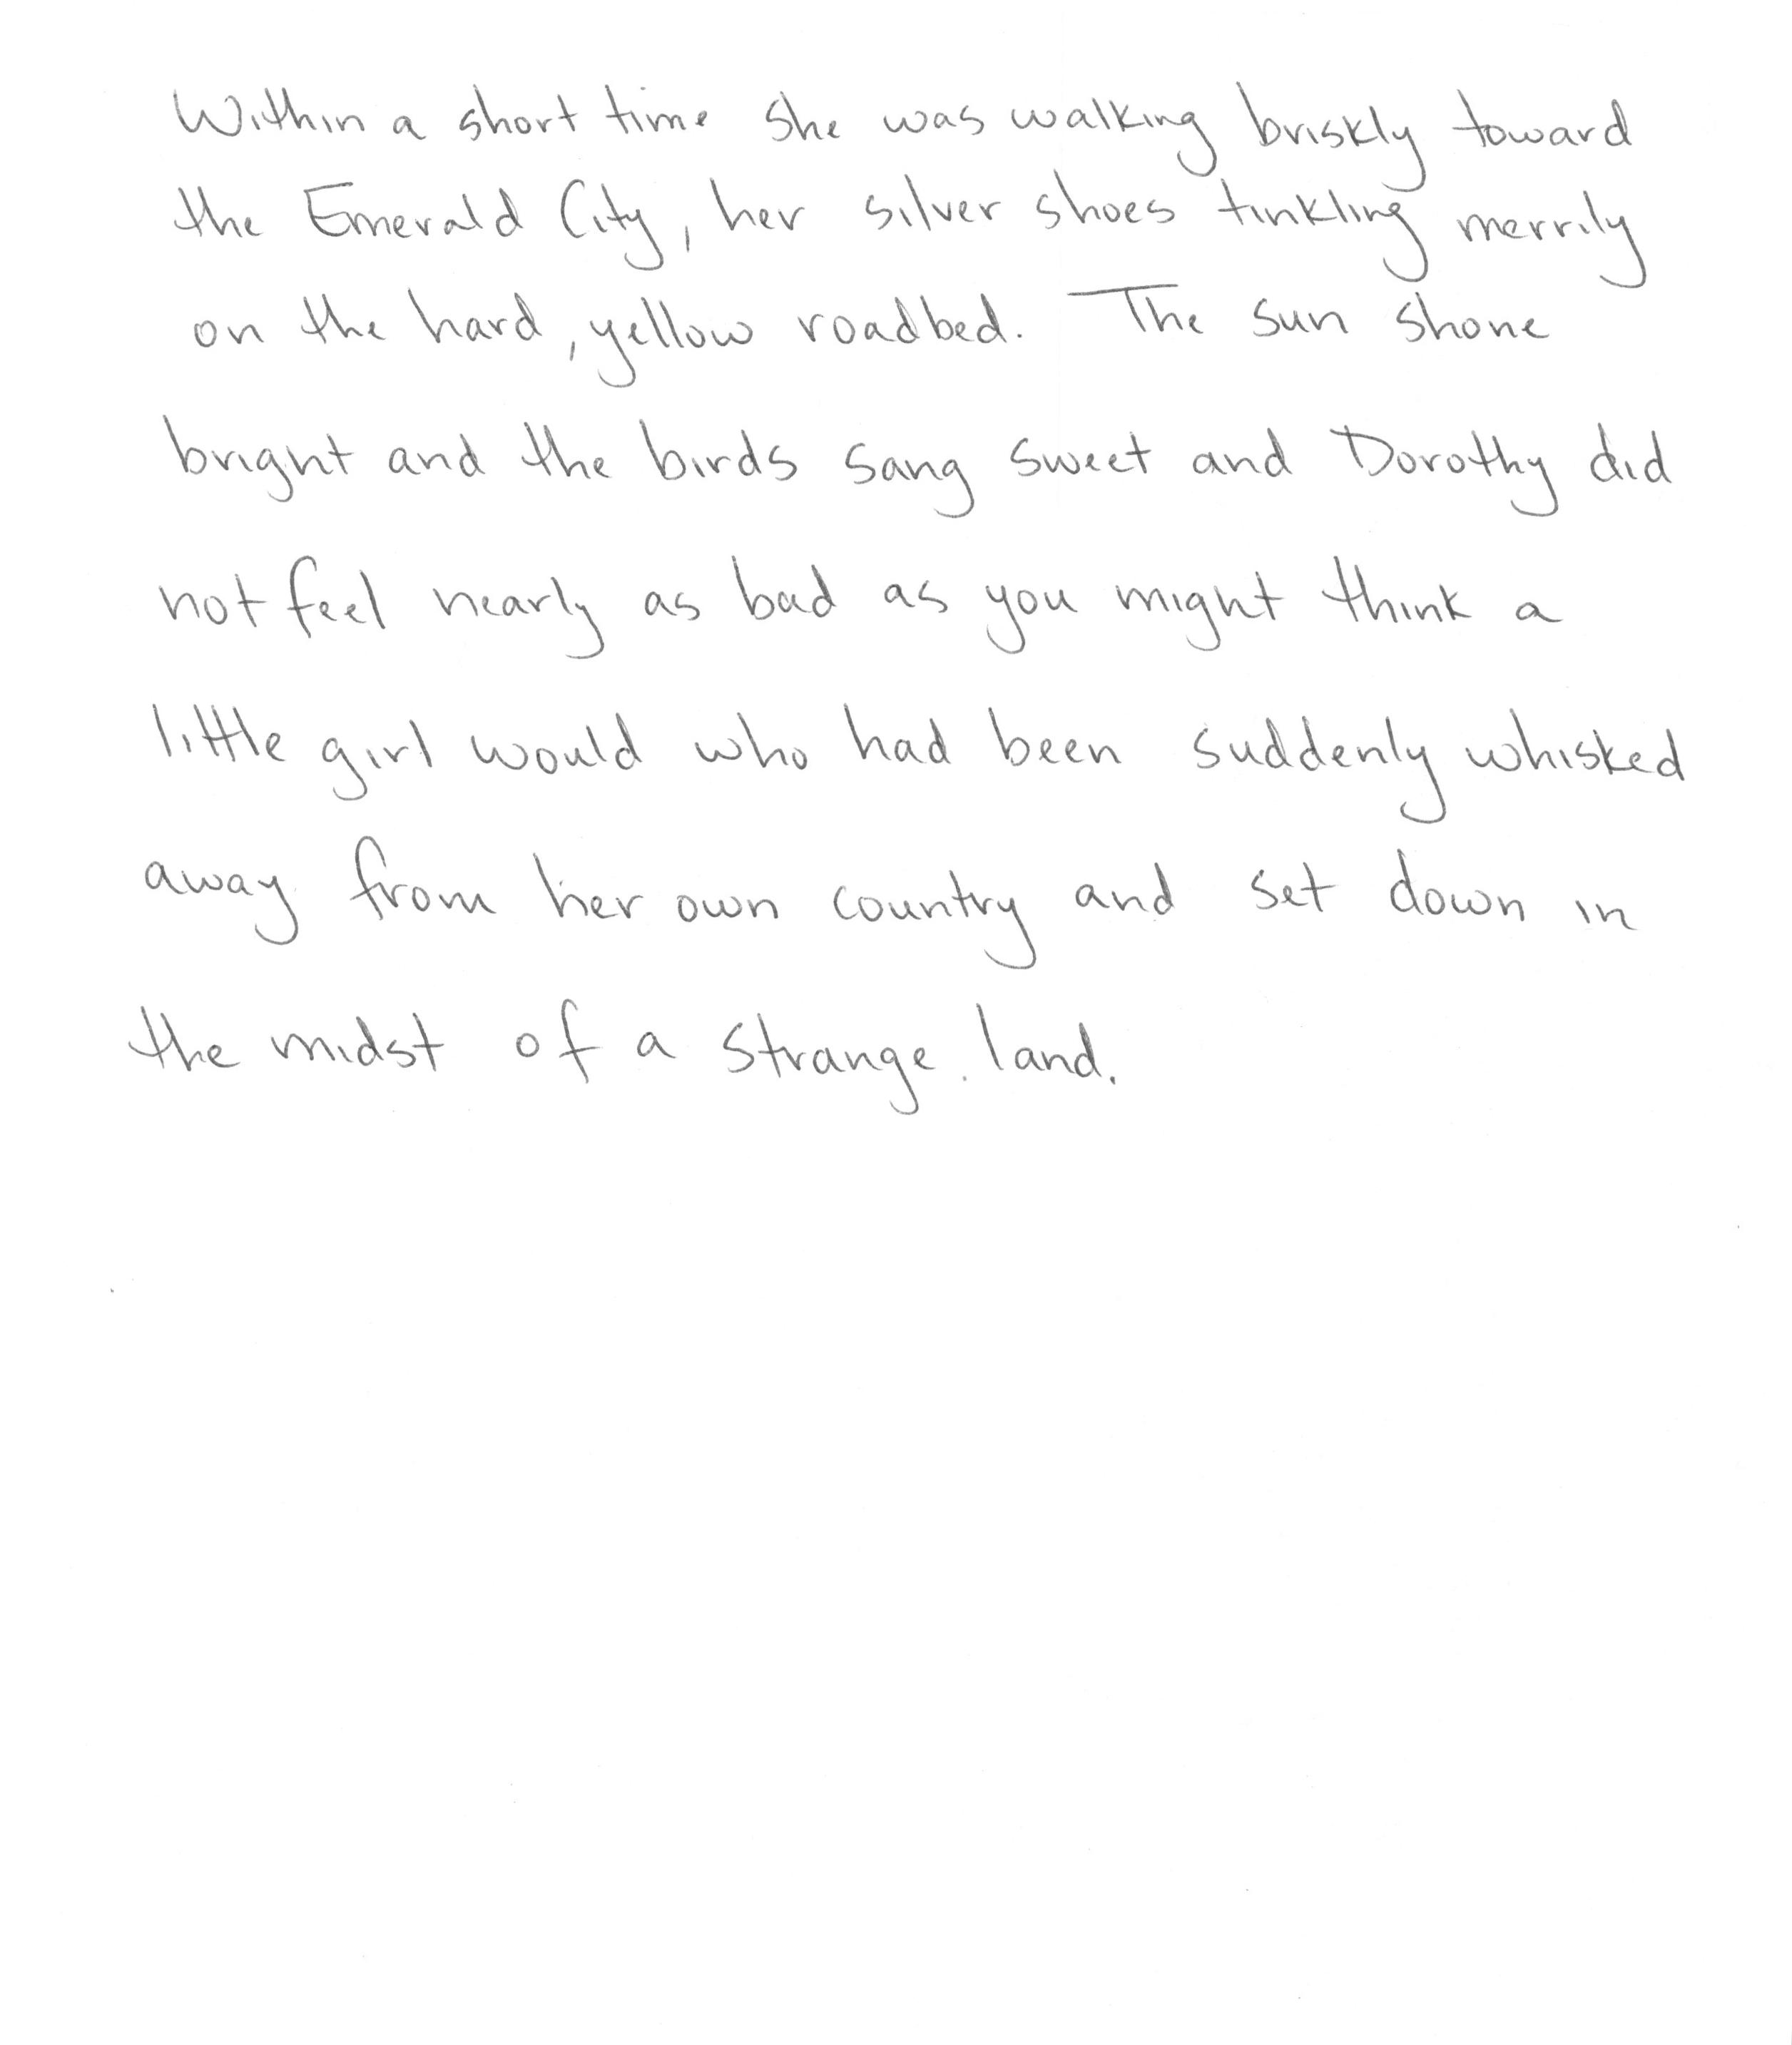 Within a short time she was walking briskly toward
the Emerald City, her silver shoes tinkling merrily
on the hard, yellow roadbed. The sun shone
bright and the birds sang sweet and Dorothy did
not feel nearly as bad as you might think a
little girl would who had been suddenly whisked
away from her own country and set down in
the midst of a strange land.